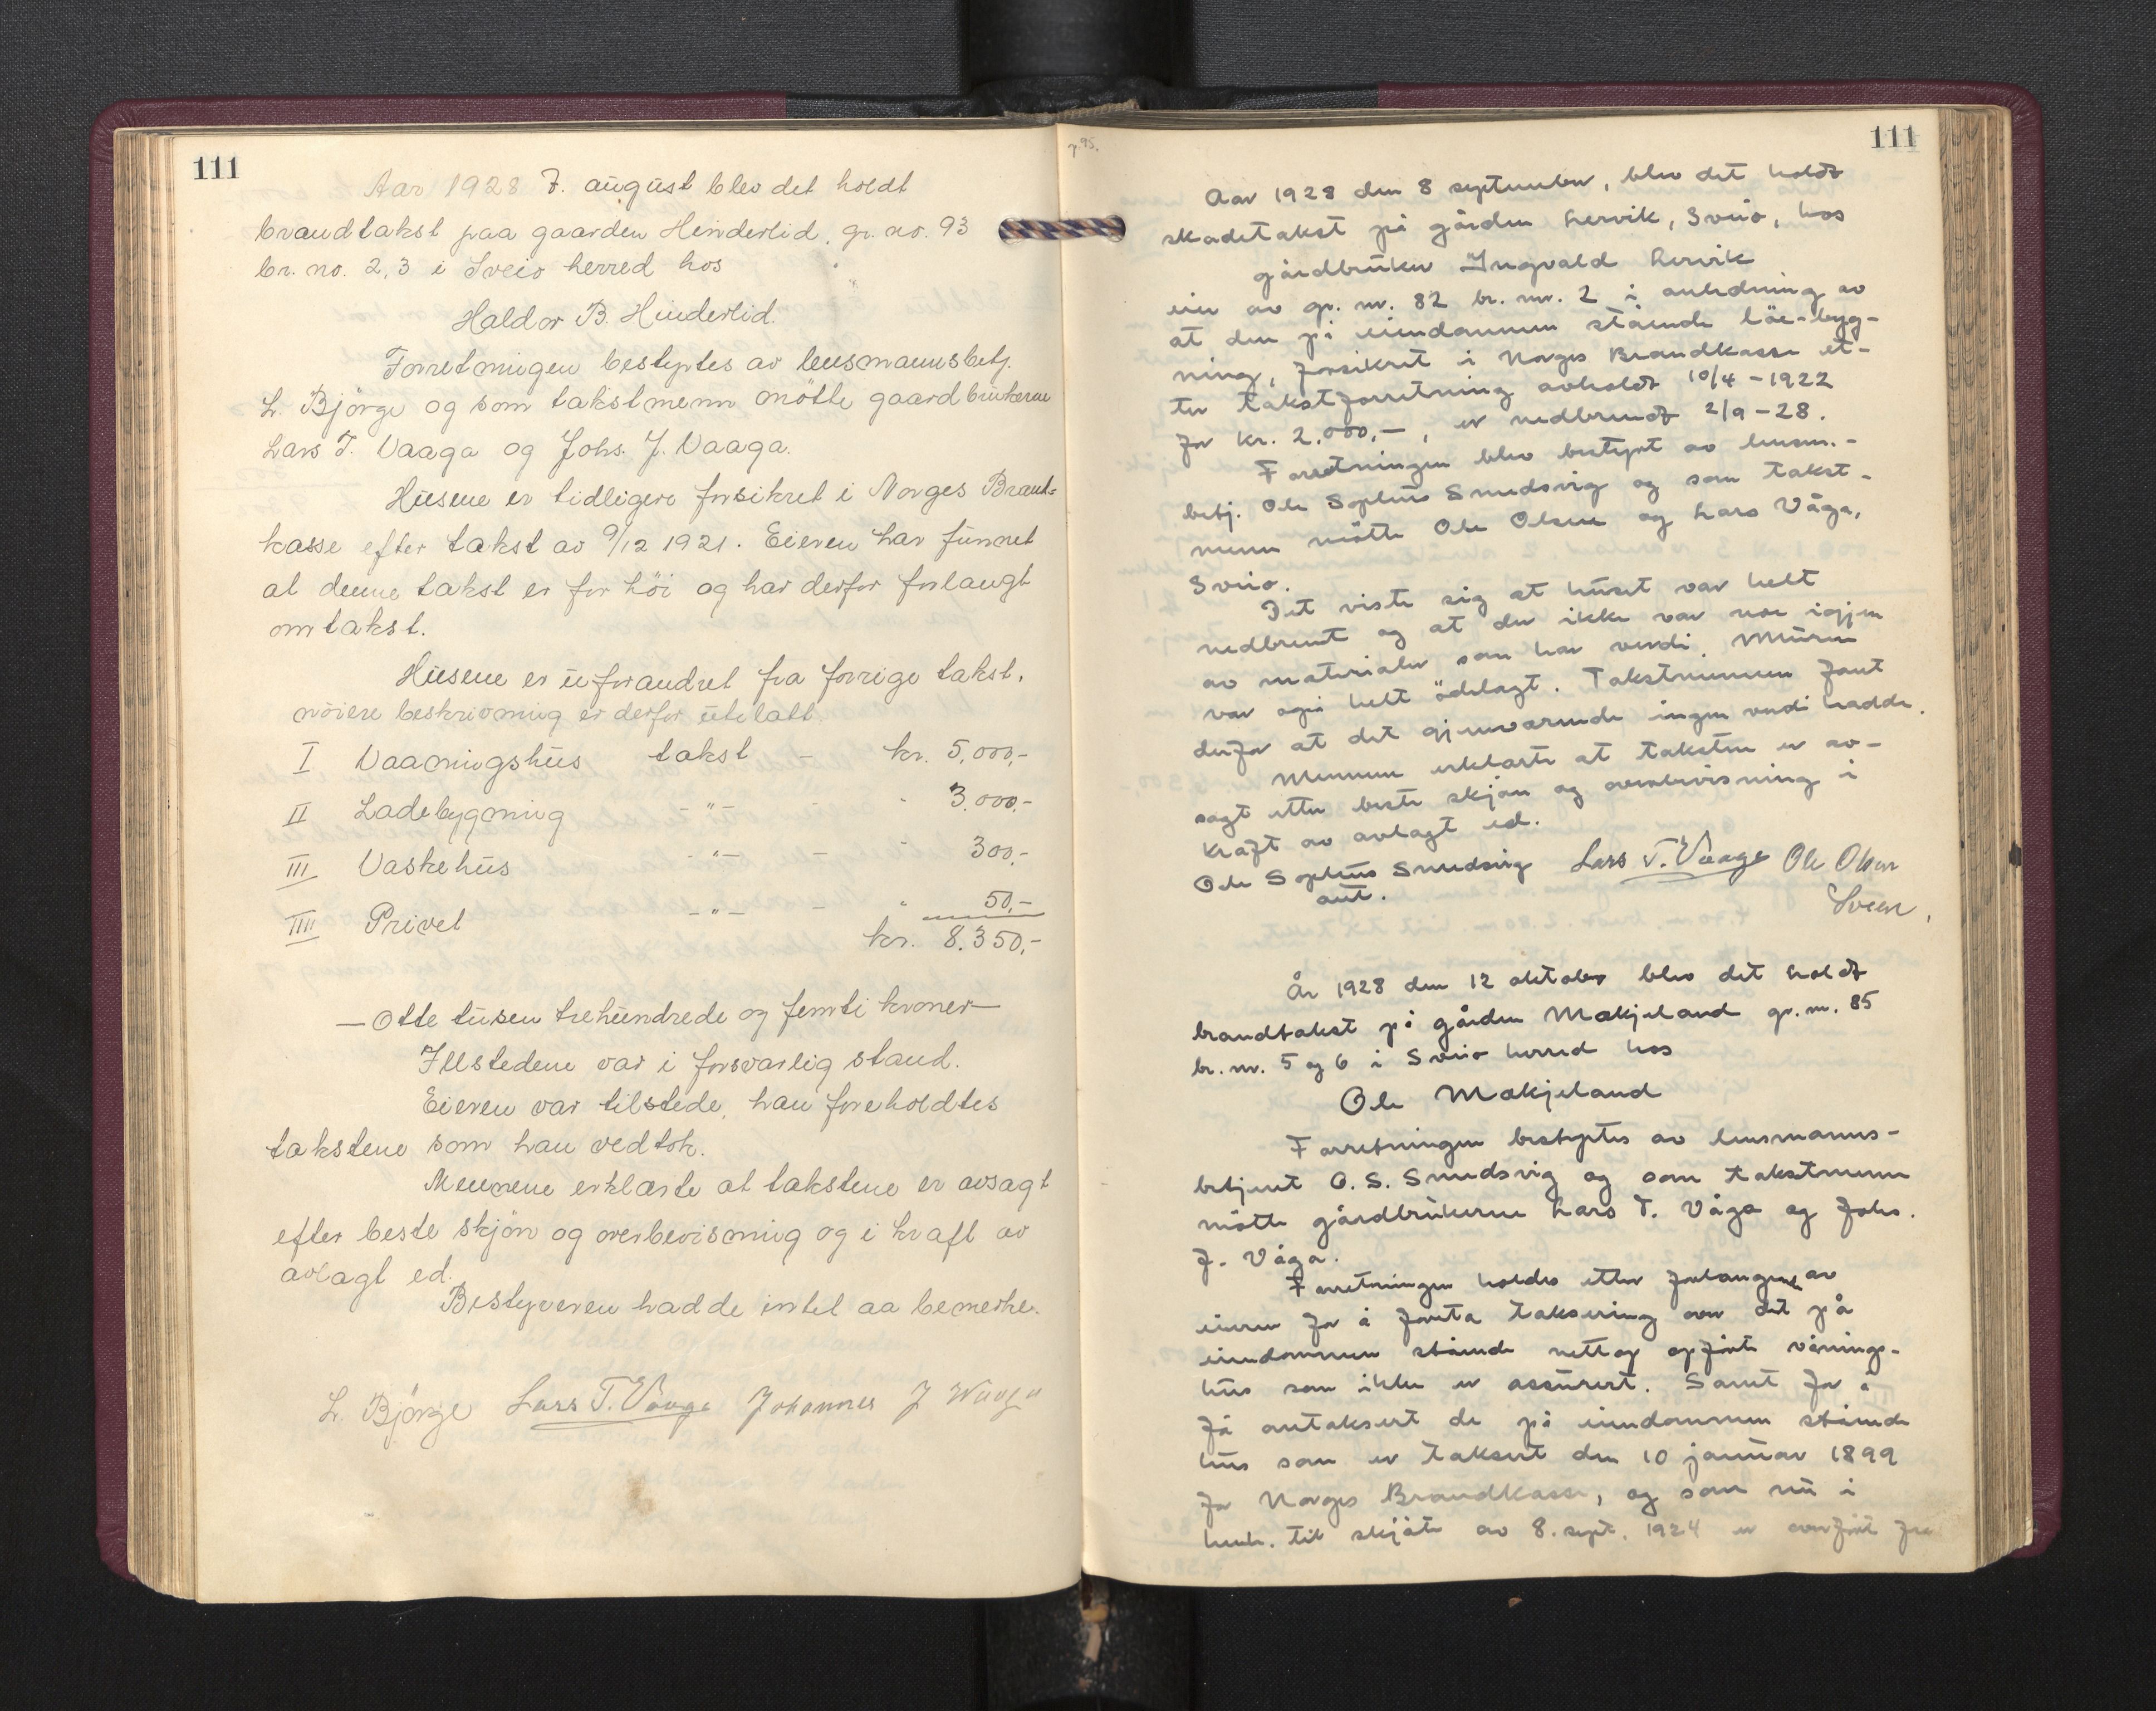 111
Aar 1928 7. august blev det holdt
brandtakst paa gaarden Hinderlid, gr. no. 93
br. no. 2,3 i Sveio herred hos
Haldor B. Hinderlid.
Forretningen bestyrtes av lensmannsbetj.
L. Bjørge og som takstmenn møtte gaardbrukerne
Lars T. Vaaga og Johs. J. Vaaga.
Husene er tidligere forsikret i Norges Brand-
kasse efter takst av 9/12 1921. Eieren har funnet
at denne takst er for höi og har derfor forlangt
omtakst.
Husene er uforandret fra forrige takst,
nöiere beskrivning er derfor utelatt.
I Vaaningshus takst - kr. 5,000,-
II Ladebygning -"- - - 3.000,-
III Vaskehus -"- - - 300,-
IIII Privet -"- - - 50,-
kr. 8.350,-
— Otte tusen trehundrede og femti kroner —
Illstedene var i forsvarlig stand.
Eieren var tilstede, han foreholdtes
takstene som han vedtok.
Mennene erklærte at takstene er avsagt
efter beste skjön og overbevisning og i kraft av
avlagt ed.
Bestyreren hadde intet aa bemerke.
L. Bjørge Lars T. Vaage Johannes J Waaga
p. 95.
111
Aar 1928 den 8 september, blev det holdt
skadetakst på gården Lervik, Sveio, hos
gårdbruker Ingvald Lervik
eier av gr. nr. 82 br. nr. 2 i anledning av
at den på eiendommen stående löe-byg-
ning, forsikret i Norges Brandkasse et-
ter takstforretning avholdt 10/4 - 1922
for kr. 2.000,-, er nedbrendt 2/9 - 28.
Forretningen blev bestyrt av lensm.-
betj. Ole Sophus Smedsvig og som takst-
menn mötte Ole Olsen og Lars Våga,
Sveio.
Det viste sig at huset var helt
nedbrent og at der ikke var noe igjen
av materialer som har verdi. Muren
var også helt ödelagt. Takstmennene fant
derfor at det gjenværende ingen verdi hadde.
Mennene erklærte at taksten er av-
sagt etter beste skjön og overbevisning i
kraft av avlagt ed.
Ole Sophus Smedsvig Lars T. Vaage Ole Olsen
aut. Sveen,
År 1928 den 12 oktober blev det holdt
brandtakst på gården Mækjeland gr. nr. 85
br. nr. 5 og 6 i Sveio herred hos
Ole Mækjeland
Forretningen bestyrtes av lensmanns-
betjent O. S. Smedsvig og som takstmenn
mötte gårdbrukerne Lars T. Våga og Johs.
J. Våga.
Forretningen holdes etter forlangende av
eieren for å foreta taksering over det på
eiendommen stående nettop opförte vånings-
hus som ikke er assurert. Samt for å
få omtaksert de på eiendommen stående
hus som er taksert den 10 januar 1899
for Norges Brandkasse, og som nu i
henh. til skjöte av 8. sept. 1924 er overfört fra